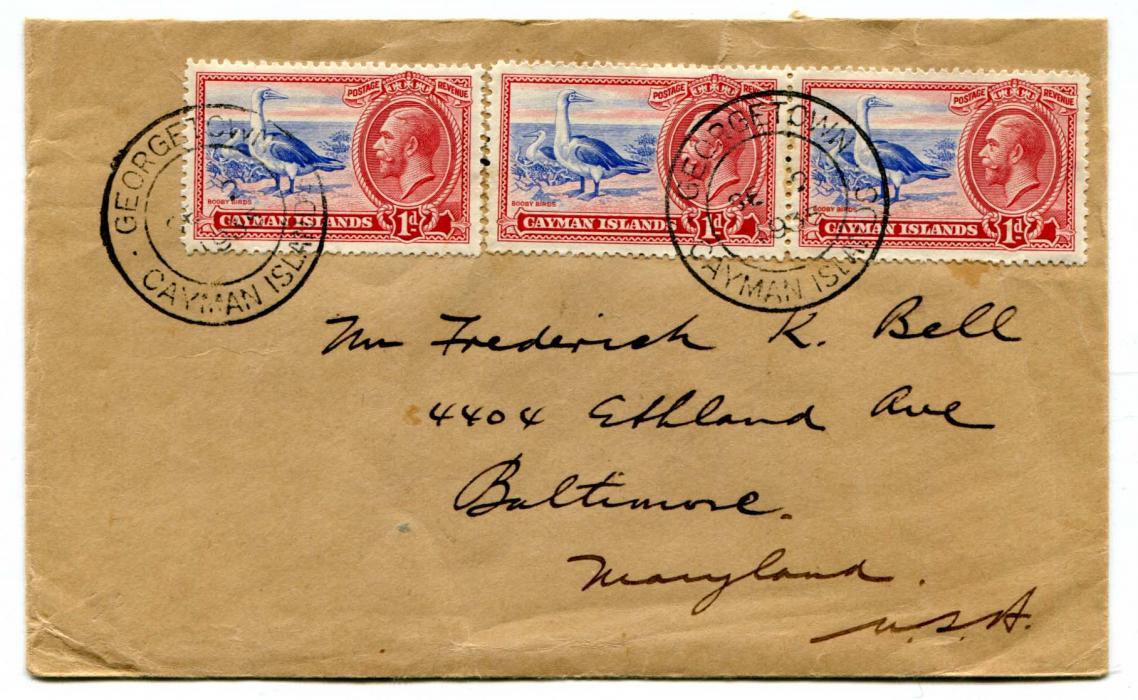 POSTAGE REVENUE
BOOBY BIRDS
CAYMAN ISLANDS 1d
POSTAGE REVENUE
BOOBY BIRDS
CAYMAN ISLANDS 1d
POSTAGE REVENUE
BOOBY BIRDS
CAYMAN ISLANDS 1d
GEORGETOWN
CAYMAN ISLANDS
GEORGETOWN
CAYMAN ISLANDS
Mr Frederick K. Bell
4404 Ethland Ave
Baltimore.
Maryland.
U.S.A.